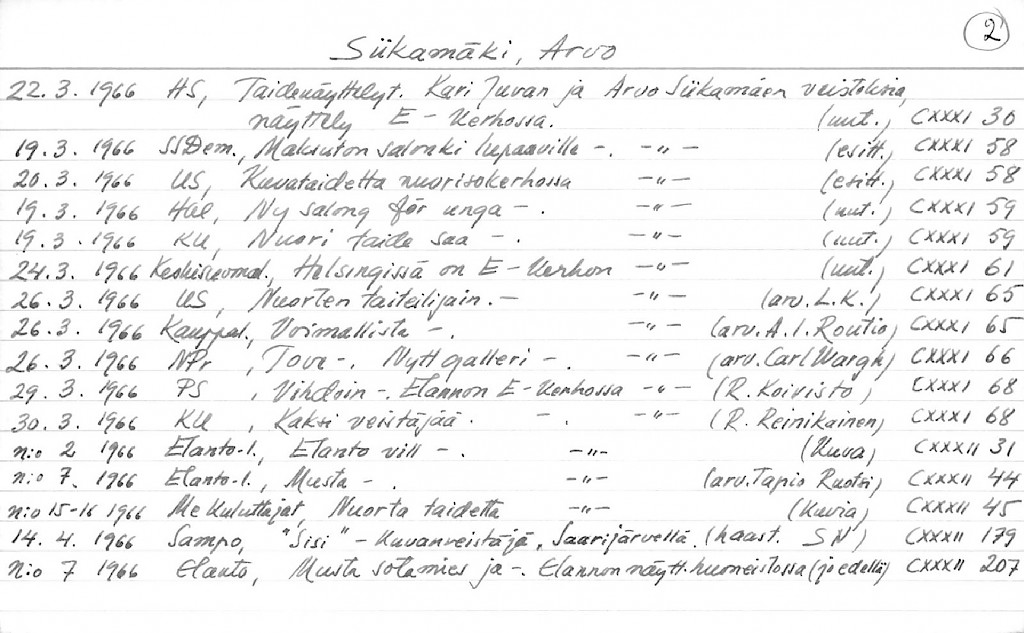 2
Siikamäki, Arvo
22.3. 1966 HS, Taidenäyttelyt. Kari Juvan ja Arvo Siikamäen veistokuva,
näyttely E-Kerhossa. (uut.) CXXXI 30
19.3. 1966 SSDem., Maksuton salonki lupaaville -. -"- (esitt.) CXXXI 58
20.3. 1966 US, Kuvataidetta nuorisokerhossa -"- (esitt.) CXXXI 58
19.3. 1966 Hbl, Ny salong för unga -. -"- (uut.) CXXXI 59
19.3. 1966 KU, Nuori taide saa -. -"- (uut.) CXXXI 59
24.3. 1966 Keskisuomal., Helsingissä on E-Kerhon -"- (uut.) CXXXI 61
26.3. 1966 US, Nuorten taiteilijain. - -"- (arv. L.K.) CXXXI 65
26.3. 1966 Kauppal., Voimallista -. -"- (arv. A.I. Routio) CXXXI 65
26.3. 1966 NPr, Tove -. Nytt galleri -. -"- (arv. Carl Wargh) CXXXI 66
29.3. 1966 PS, Vihdoin -. Elannon E-Kerhossa -"- (R. Koivisto) CXXXI 68
30.3. 1966 KU, Kaksi veistäjää. - . -"- (R. Reinikainen) CXXXI 68
n:o 2 1966 Elanto-l., Elanto vill -. -"- (Kuva) CXXXII 31
n:o 7. 1966 Elanto-l., Musta -. -"- (arv. Tapio Ruotsi) CXXXII 44
n:o 15-16 1966 Me Kuluttajat, Nuorta taidetta -"- (kuvia) CXXXII 45
14.4. 1966 Sampo, "Sisi" - kuvanveistäjä, Saarijärvellä. (haast. SN) CXXXII 179
n:o 7 1966 Elanto, Musta sotamies ja -. Elannon näytt.huoneistossa (jo edellä) CXXXII 207